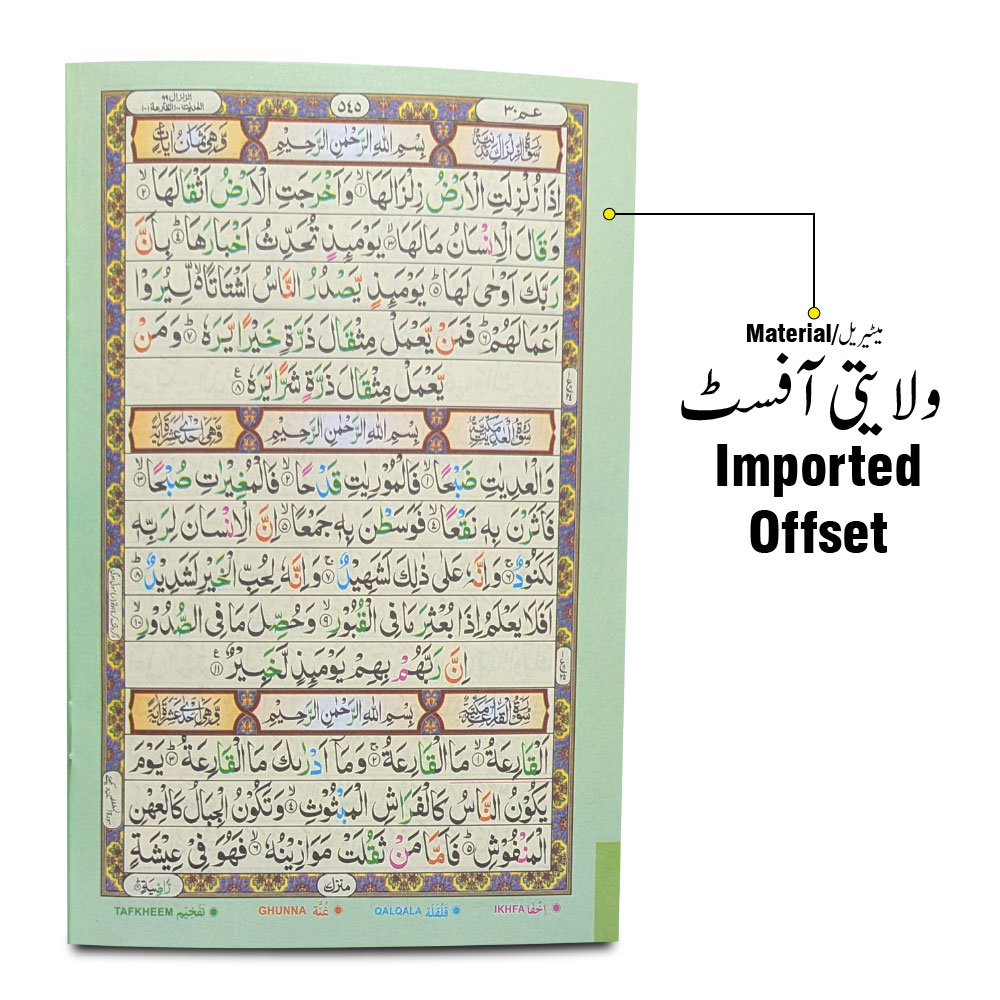 الزلزال ٩٩
العٰدیٰت ١٠٠ القارعة ١٠١
٥٤٥
عم ٣٠
سُوْرَةُ الزِّلْزَالِ مَدَنِيَّةٌ بِسْمِ اللّٰهِ الرَّحْمٰنِ الرَّحِيْمِ وَّهِيَ ثَمَانُ اٰيَاتٍ
اِذَا زُلْزِلَتِ الْاَرْضُ زِلْزَالَهَا ۙ﴿١﴾ وَاَخْرَجَتِ الْاَرْضُ اَثْقَالَهَا ۙ﴿٢﴾
وَقَالَ الْاِنْسَانُ مَا لَهَا ۚ﴿٣﴾ يَوْمَئِذٍ تُحَدِّثُ اَخْبَارَهَا ۙ﴿٤﴾ بِاَنَّ
رَبَّكَ اَوْحٰى لَهَا ؕ﴿٥﴾ يَوْمَئِذٍ يَّصْدُرُ النَّاسُ اَشْتَاتًا ۙ۬ لِّيُرَوْا
اَعْمَالَهُمْ ؕ﴿٦﴾ فَمَنْ يَّعْمَلْ مِثْقَالَ ذَرَّةٍ خَيْرًا يَّرَهٗ ؕ﴿٧﴾ وَمَنْ
يَّعْمَلْ مِثْقَالَ ذَرَّةٍ شَرًّا يَّرَهٗ ﴿٨﴾ ع
سُوْرَةُ الْعٰدِيٰتِ مَكِّيَّةٌ بِسْمِ اللّٰهِ الرَّحْمٰنِ الرَّحِيْمِ وَّهِيَ اِحْدٰى عَشْرَةَ اٰيَةً
وَالْعٰدِيٰتِ ضَبْحًا ۙ﴿١﴾ فَالْمُوْرِيٰتِ قَدْحًا ۙ﴿٢﴾ فَالْمُغِيْرٰتِ صُبْحًا ۙ﴿٣﴾
فَاَثَرْنَ بِهٖ نَقْعًا ۙ﴿٤﴾ فَوَسَطْنَ بِهٖ جَمْعًا ۙ﴿٥﴾ اِنَّ الْاِنْسَانَ لِرَبِّهٖ
لَكَنُوْدٌ ۚ﴿٦﴾ وَاِنَّهٗ عَلٰى ذٰلِكَ لَشَهِيْدٌ ۚ﴿٧﴾ وَاِنَّهٗ لِحُبِّ الْخَيْرِ لَشَدِيْدٌ ؕ﴿٨﴾
اَفَلَا يَعْلَمُ اِذَا بُعْثِرَ مَا فِى الْقُبُوْرِ ۙ﴿٩﴾ وَحُصِّلَ مَا فِى الصُّدُوْرِ ۙ﴿١٠﴾
اِنَّ رَبَّهُمْ بِهِمْ يَوْمَئِذٍ لَّخَبِيْرٌ ﴿١١﴾ ع
سُوْرَةُ الْقَارِعَةِ مَكِّيَّةٌ بِسْمِ اللّٰهِ الرَّحْمٰنِ الرَّحِيْمِ وَّهِيَ اِحْدٰى عَشْرَةَ اٰيَةً
اَلْقَارِعَةُ ۙ﴿١﴾ مَا الْقَارِعَةُ ۚ﴿٢﴾ وَمَاۤ اَدْرٰىكَ مَا الْقَارِعَةُ ؕ﴿٣﴾ يَوْمَ
يَكُوْنُ النَّاسُ كَالْفَرَاشِ الْمَبْثُوْثِ ۙ﴿٤﴾ وَتَكُوْنُ الْجِبَالُ كَالْعِهْنِ
الْمَنْفُوْشِ ؕ﴿٥﴾ فَاَمَّا مَنْ ثَقُلَتْ مَوَازِيْنُهٗ ۙ﴿٦﴾ فَهُوَ فِىْ عِيْشَةٍ
رَّاضِيَةٍ
منزل
TAFKHEEM تَفْخِيْم
GHUNNA غُنَّه
QALQALA قَلْقَلَه
IKHFA اِخْفَا
Material/میٹیریل
ولایتی آفسٹ
Imported
Offset